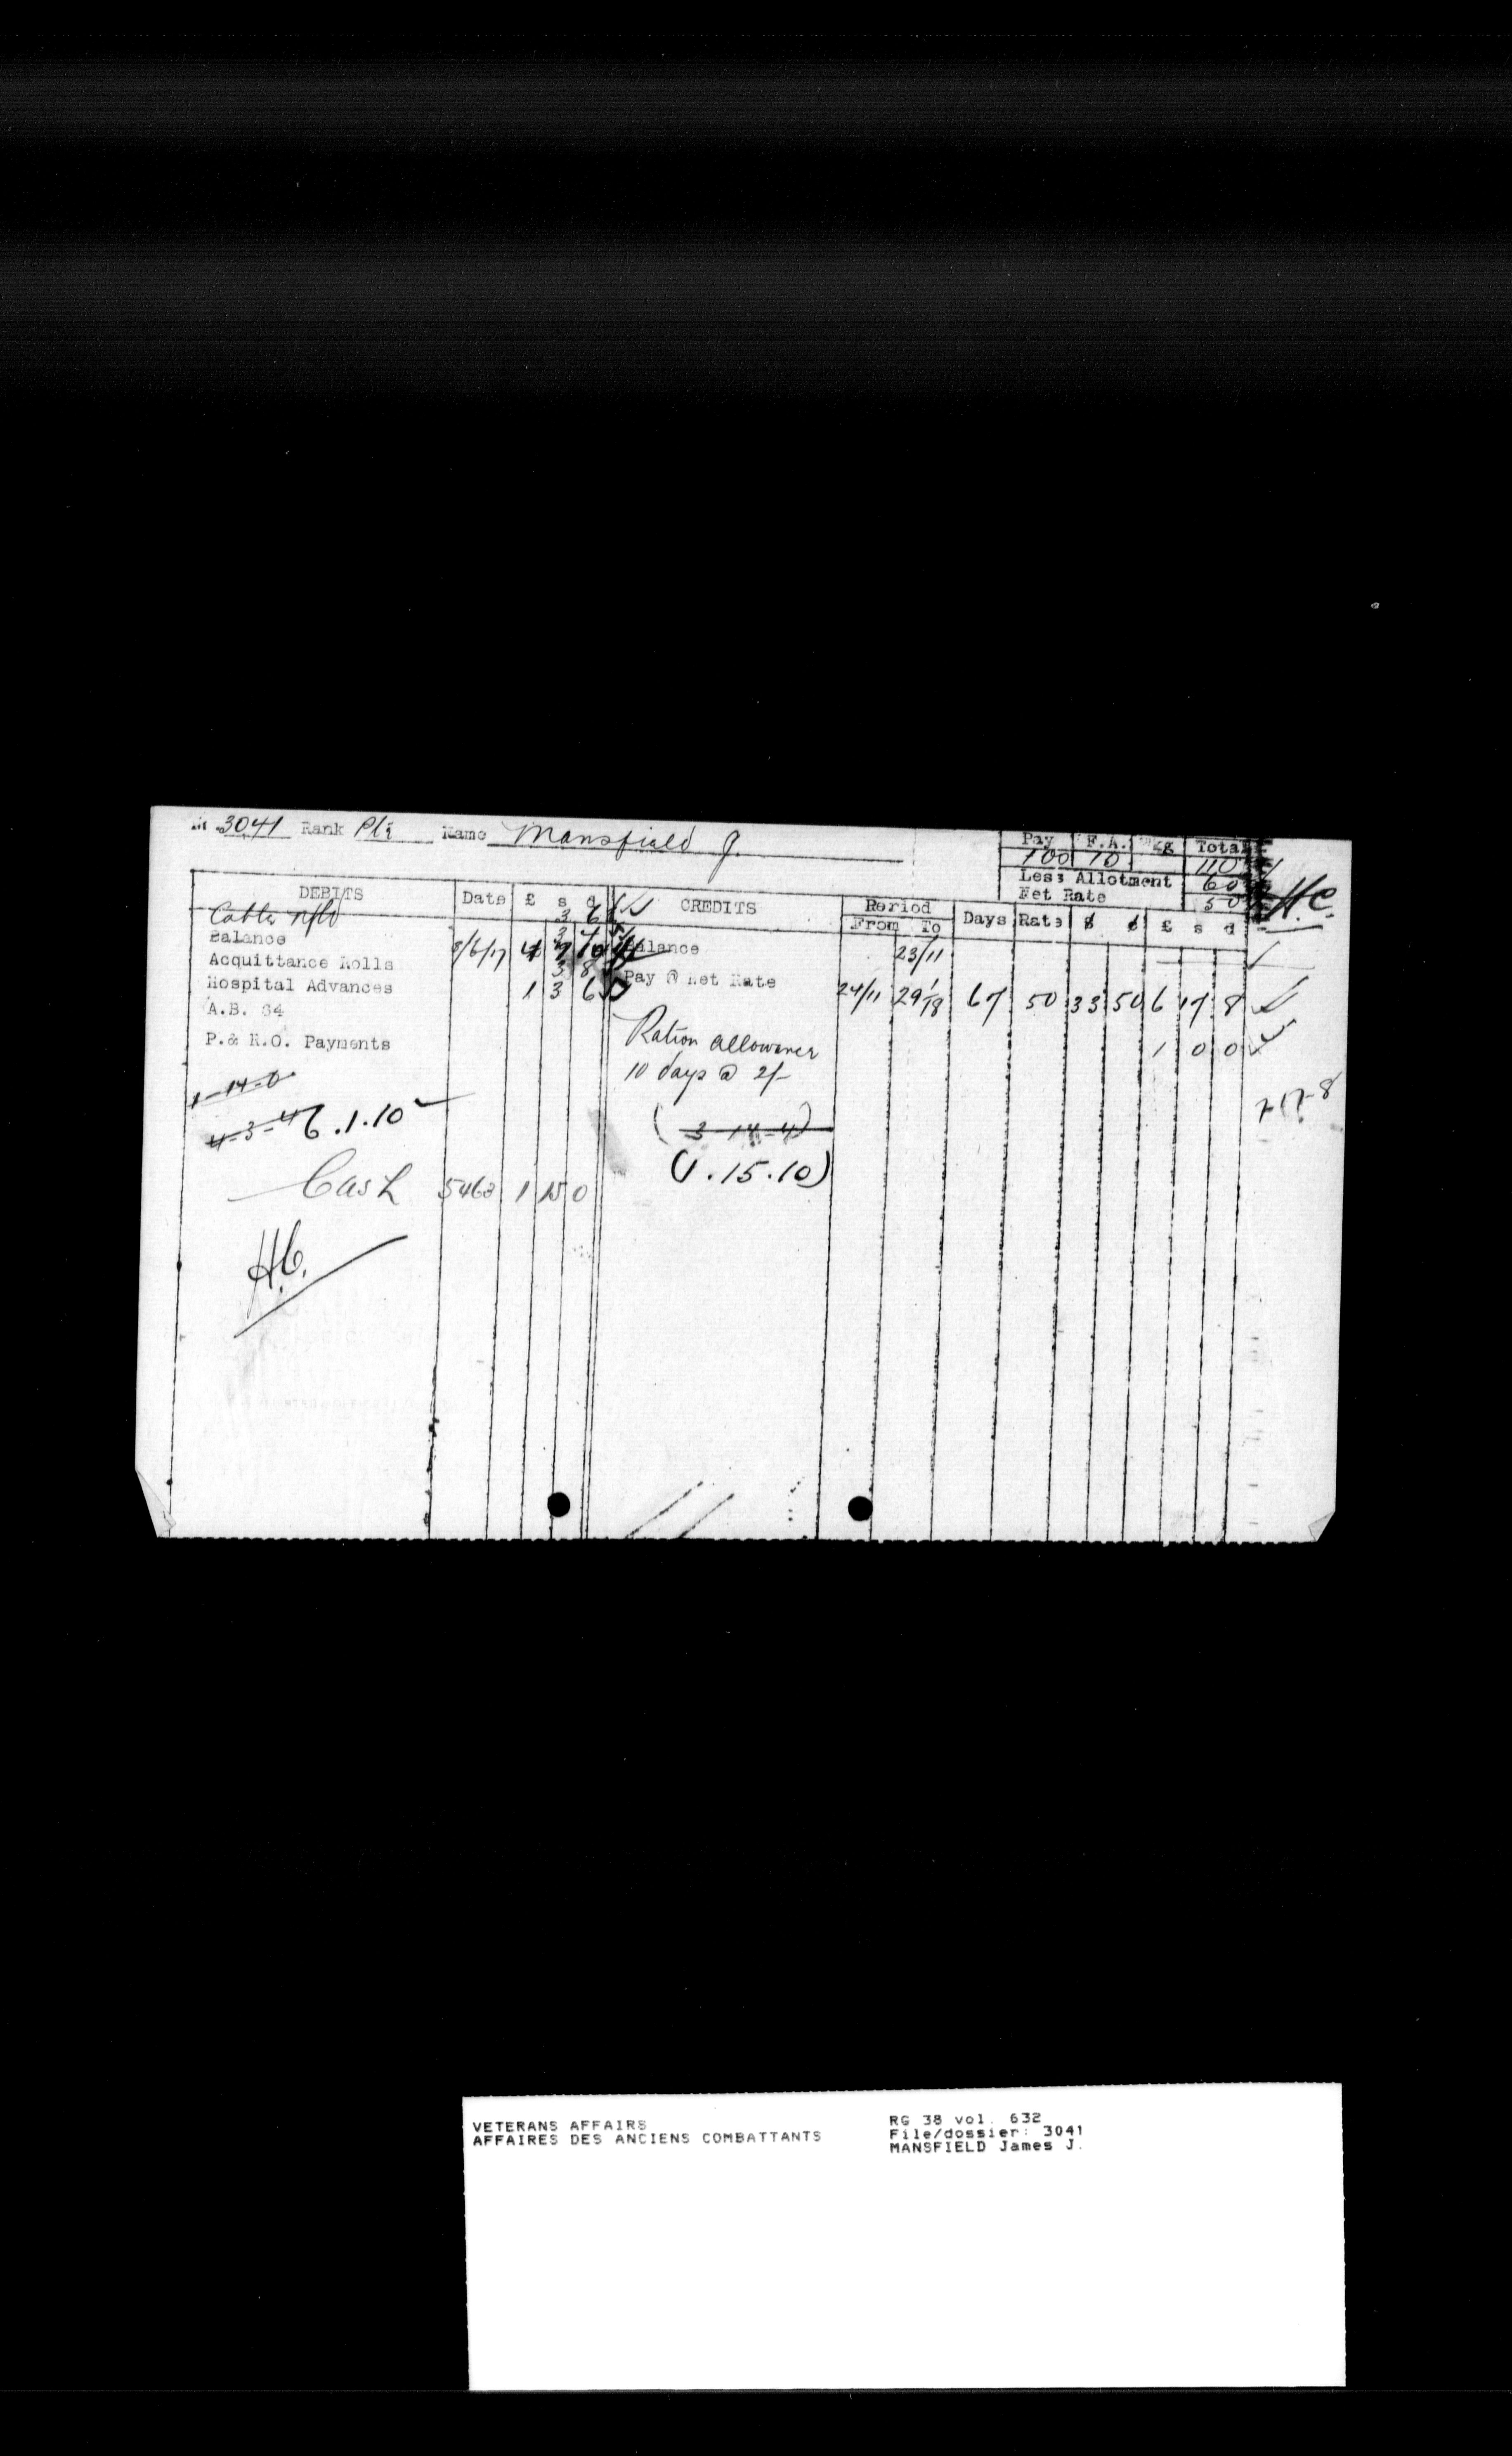 3041 Rank Pte Name Mansfield J.
Pay F.A. Total
100 10 110
Less Allotment 60
Net Rate 50
H.C.
DEBITS Date £ s d CREDITS Period From To Days Rate $ ¢ £ s d
Cable Nfld 3 6
Balance 3 Balance 23/11
Acquittance Rolls 8/6/17 4 7 10
Hospital Advances 3 8 Pay @ Net Rate 24/11 29/1/18 67 50 33 50 6 17 8
A.B. 64 1 3 6
P.& R.O. Payments
Ration allowance 1 0 0
10 days @ 2/-
1-14-0
7-17-8
4-3-4 6.1.10
(3-14-4)
(1.15.10)
Cash 5463 1 15 0
H.C.
VETERANS AFFAIRS
AFFAIRES DES ANCIENS COMBATTANTS
RG 38 vol. 632
File/dossier: 3041
MANSFIELD James J.